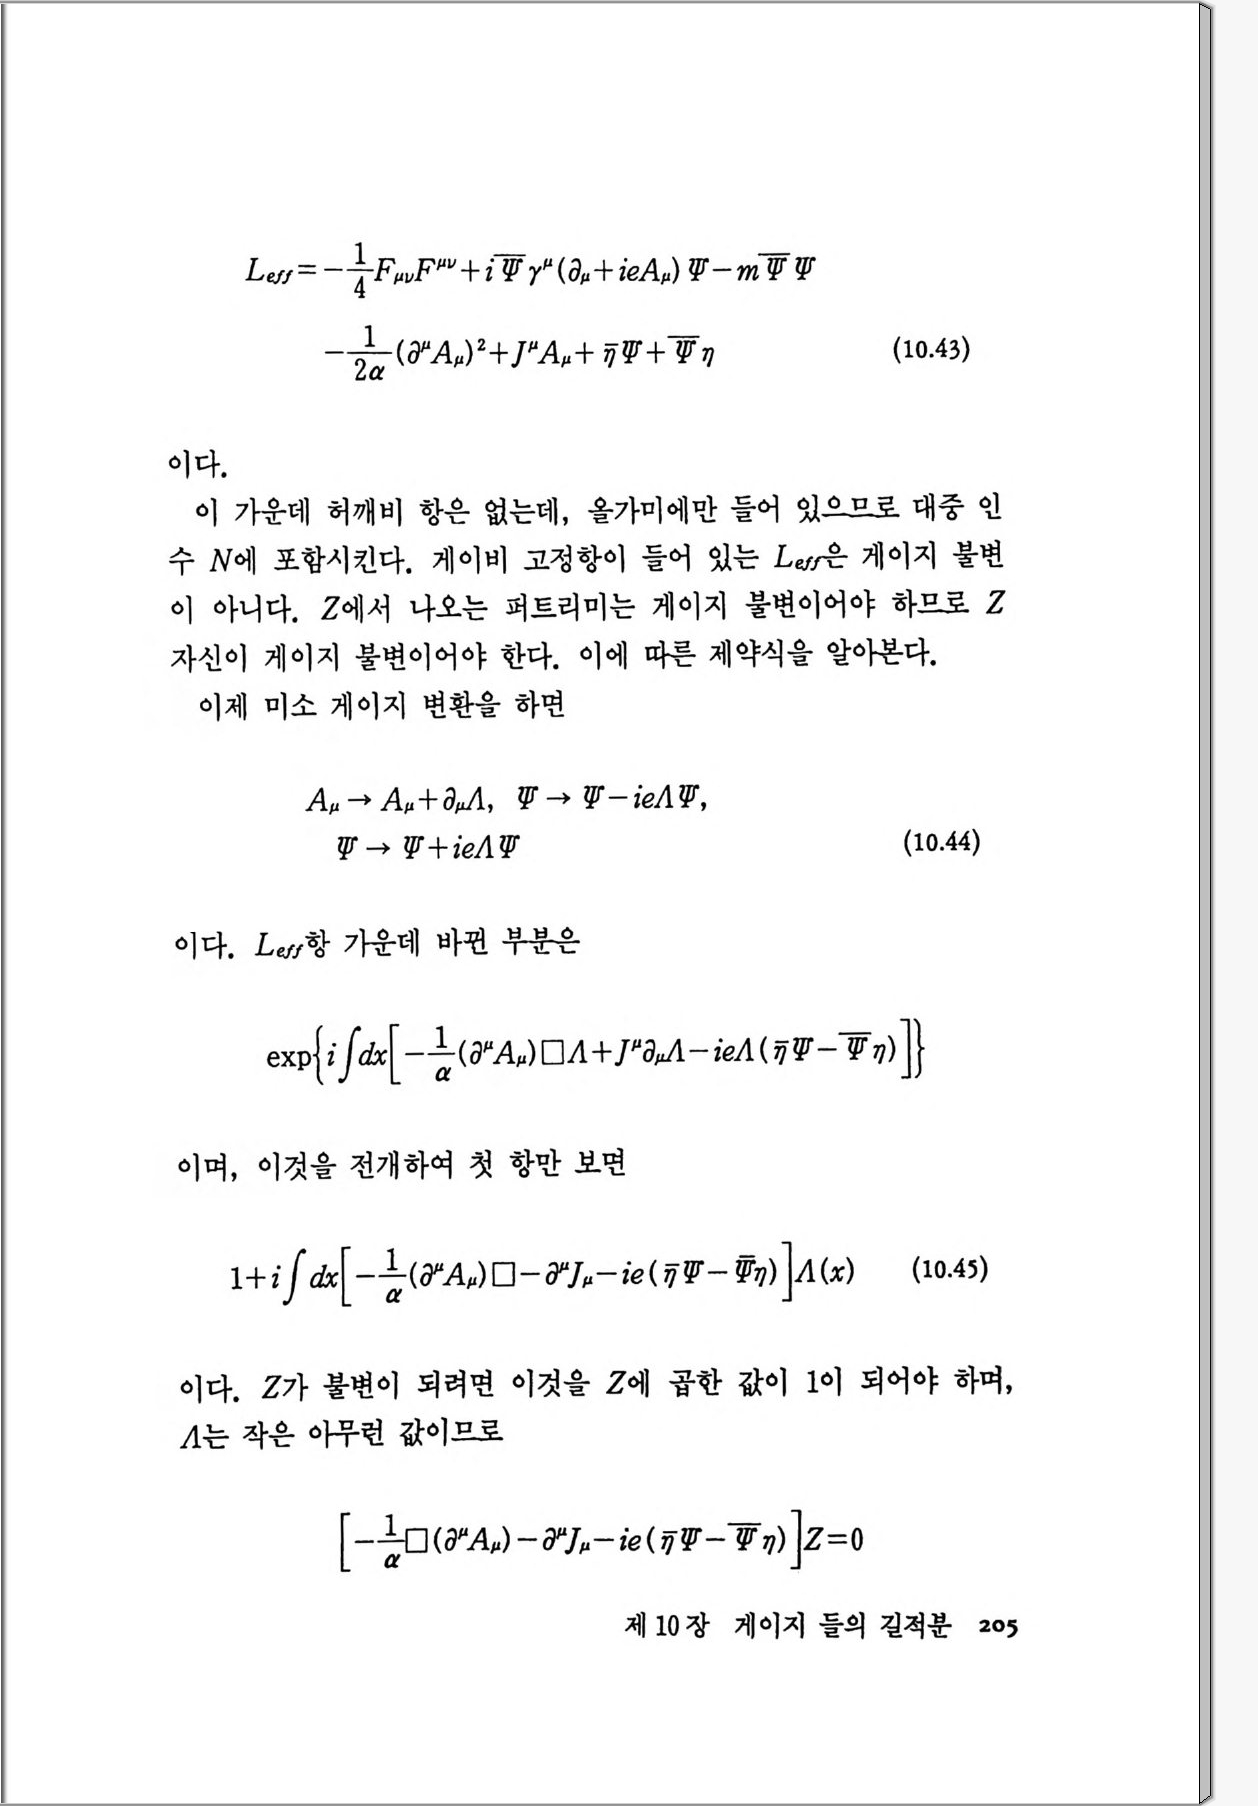 L_eff = −1/4 F_μν F^μν + i Ψ̅ γ^μ (∂_μ + ieA_μ) Ψ − m Ψ̅ Ψ
−1/2α (∂^μ A_μ)² + J^μ A_μ + η̅ Ψ + Ψ̅ η (10.43)
이다.
이 가운데 허깨비 항은 없는데, 올가미에만 들어 있으므로 대중 인
수 N에 포함시킨다. 게이비 고정항이 들어 있는 L_eff은 게이지 불변
이 아니다. Z에서 나오는 퍼트리미는 게이지 불변이어야 하므로 Z
자신이 게이지 불변이어야 한다. 이에 따른 제약식을 알아본다.
이제 미소 게이지 변환을 하면
A_μ → A_μ + ∂_μ Λ, Ψ → Ψ − ieΛΨ,
Ψ → Ψ + ieΛΨ (10.44)
이다. L_eff항 가운데 바뀐 부분은
exp{i∫dx[−1/α (∂^μ A_μ) □Λ + J^μ ∂_μ Λ − ieΛ(η̅ Ψ − Ψ̅ η)]}
이며, 이것을 전개하여 첫 항만 보면
1 + i∫dx[−1/α (∂^μ A_μ) □ − ∂^μ J_μ − ie(η̅ Ψ − Ψ̅ η)]Λ(x) (10.45)
이다. Z가 불변이 되려면 이것을 Z에 곱한 값이 1이 되어야 하며,
Λ는 작은 아무런 값이므로
[−1/α □(∂^μ A_μ) − ∂^μ J_μ − ie(η̅ Ψ − Ψ̅ η)]Z = 0
제 10 장 게이지 들의 길적분 205